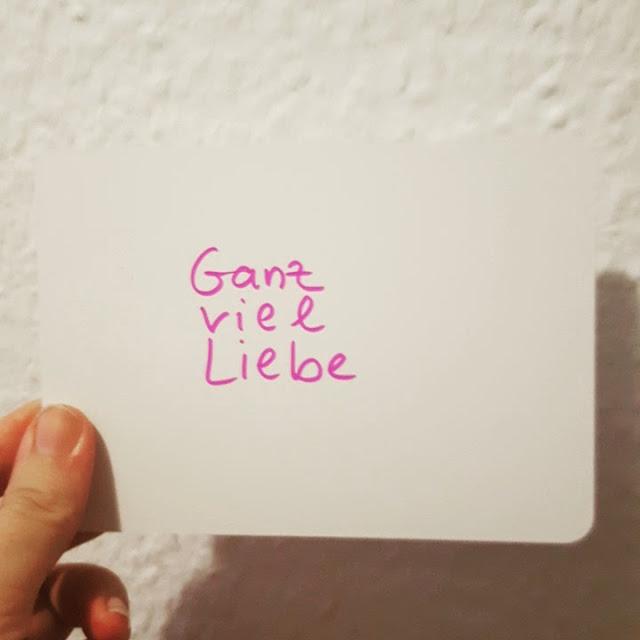 Ganz
viel
Liebe